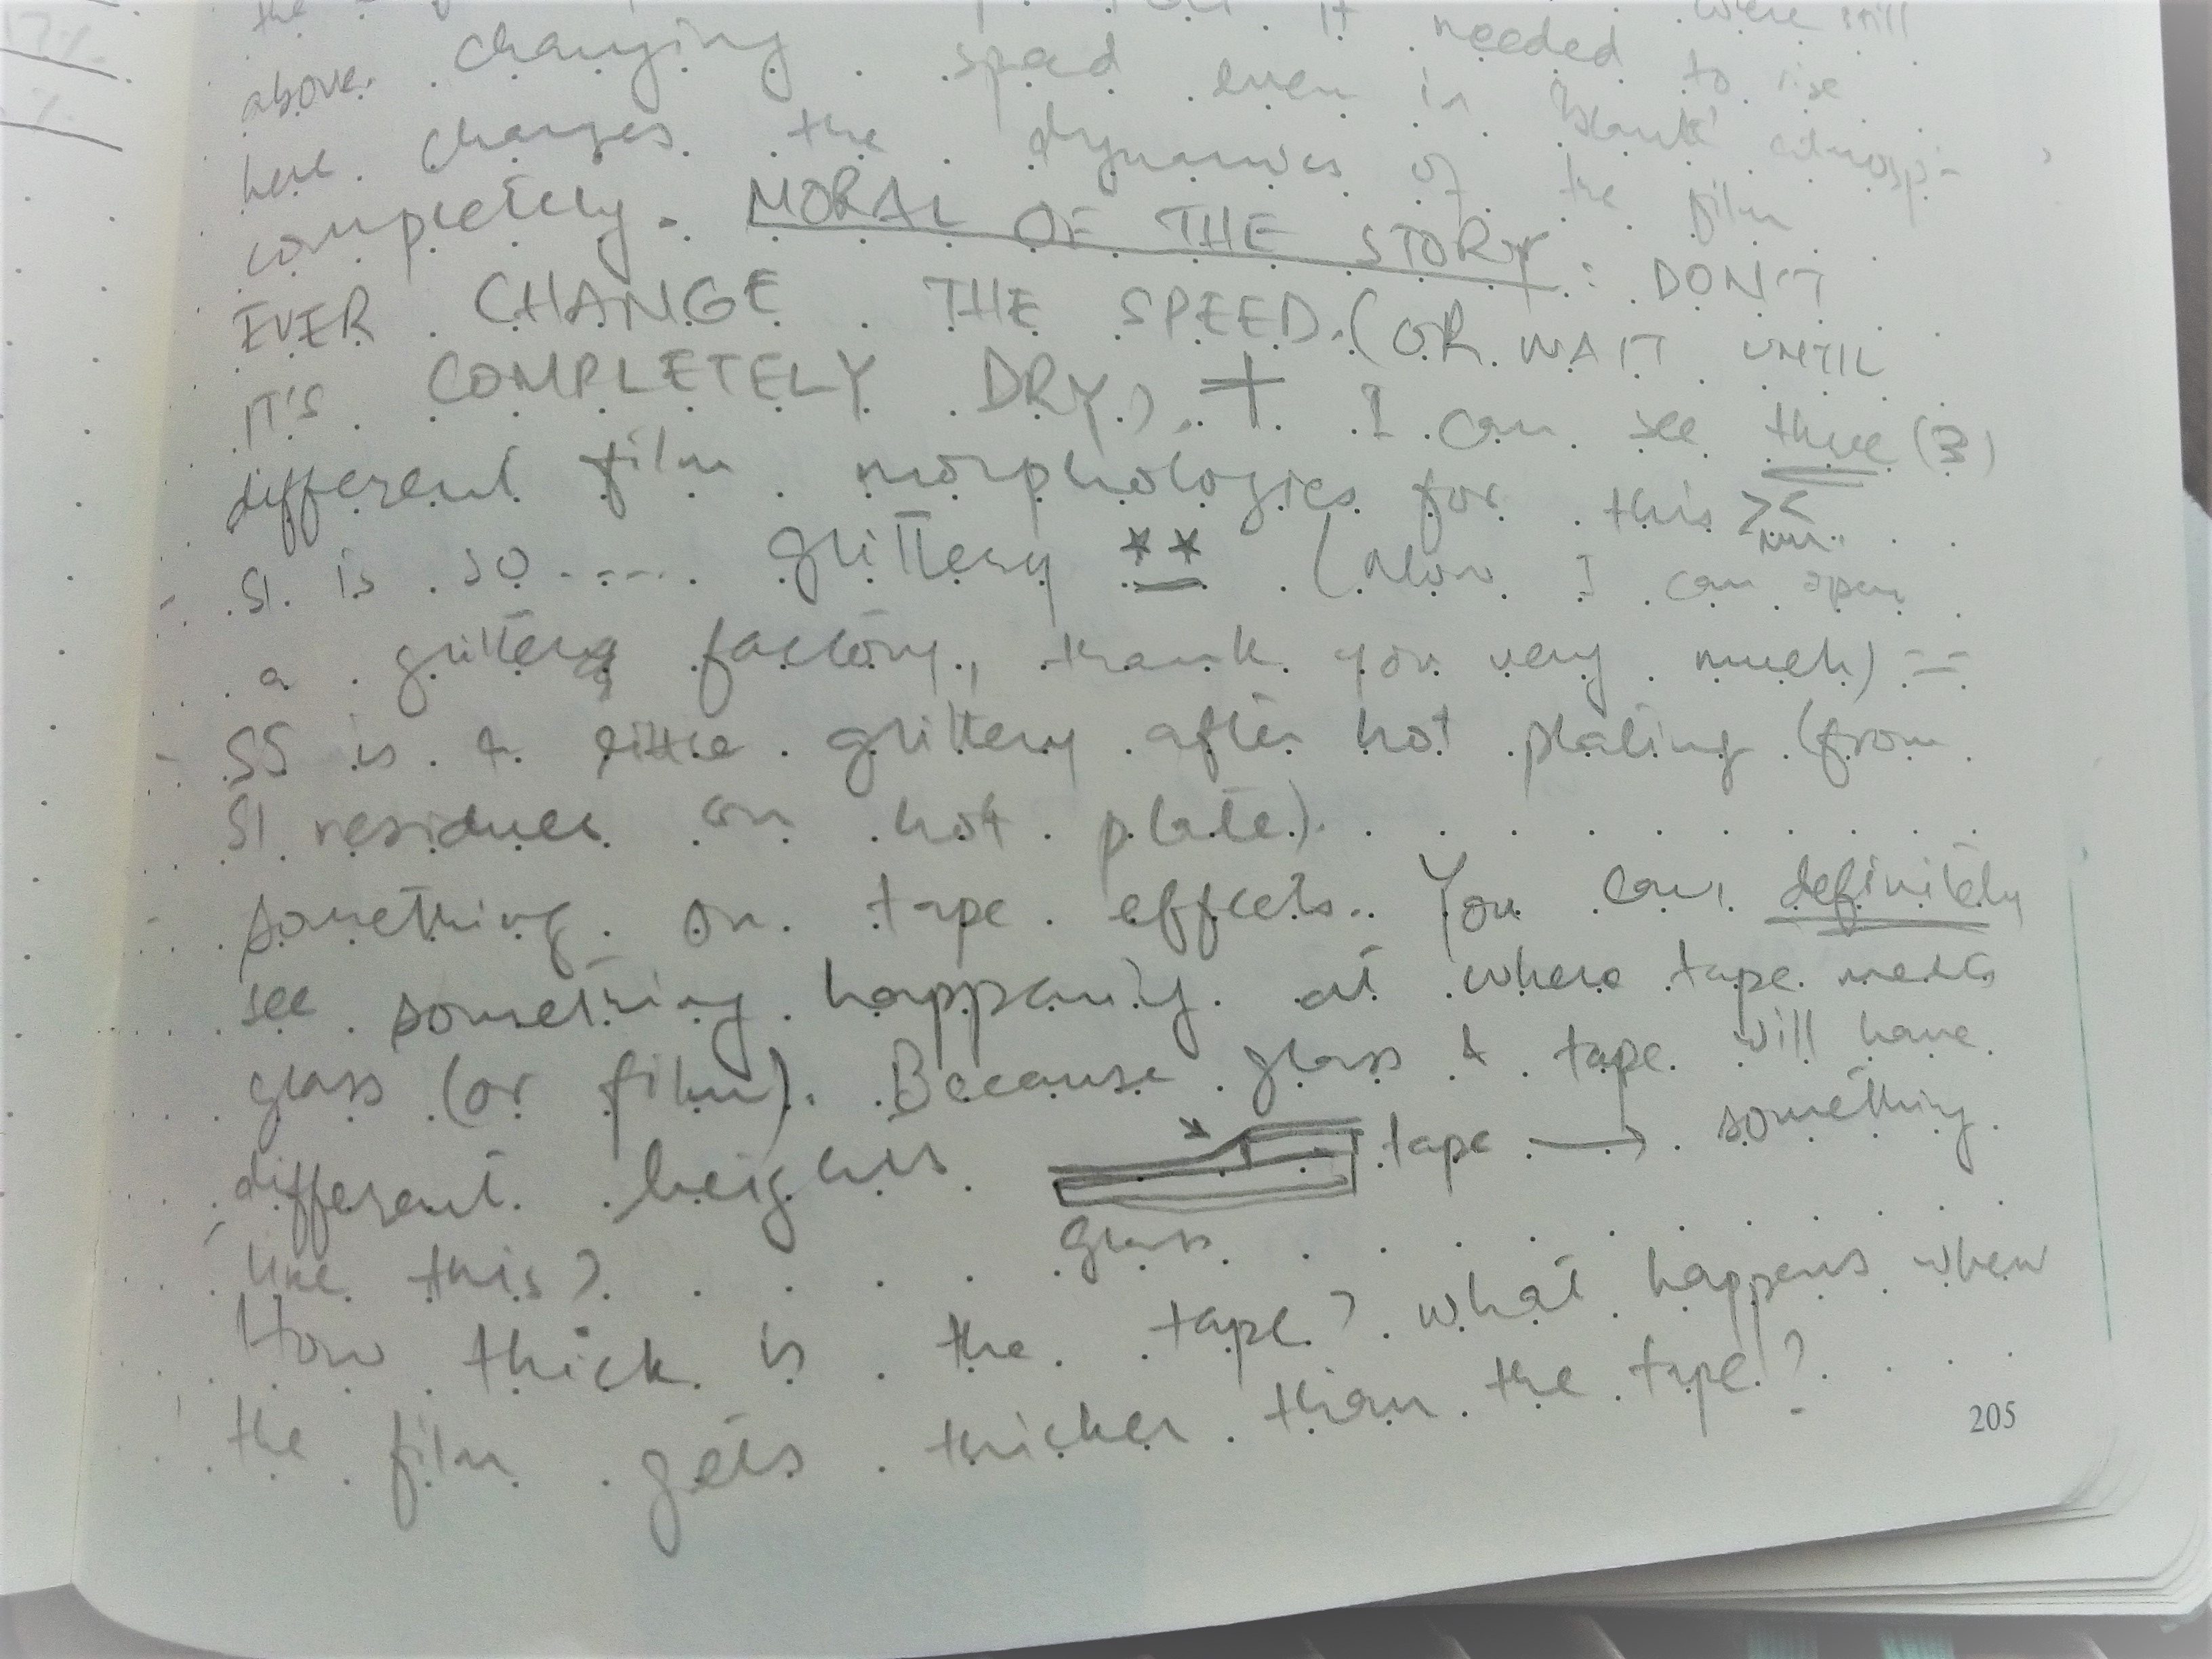 17%
%
the it were still
above. Changing speed even in needed to rise
here changes the dynamics of 'blank' atmosp-
completely. MORAL OF THE STORY: DON'T the film
EVER CHANGE THE SPEED. (OR WAIT UNTIL
IT'S COMPLETELY DRY). + I can see three (3)
different film morphologies for this ><
- S1 is so ..... glittery ** (Now I can open
a glittery factory, thank you very much) --
- S5 is a little glittery after hot plating (from
S1 residues on hot plate).
- something on tape effects. You can definitely
see something happening at where tape meets
glass (or film). Because glass & tape will have
different heights. tape → something
glass
like this?
How thick is the tape? What happens when
the film gets thicker than the tape?
205